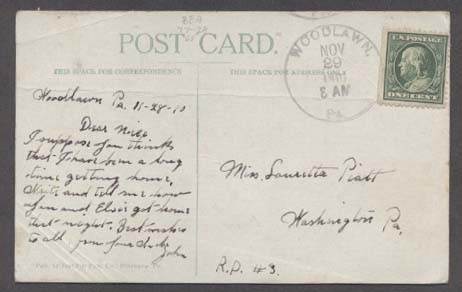 POST CARD.
THIS SPACE FOR CORRESPONDENCE
THIS SPACE FOR ADDRESS ONLY
WOODLAWN,
NOV
29
8 AM
Pa.
U.S. POSTAGE
ONE CENT
Woodlawn Pa. 11-28-10
Dear Niece
I suppose you think
that I have been a long
time getting home,
Write and tell me how
you and Elsie got home
that night. Best wishes
to all
John
Miss Lauretta Piatt
Washington Pa.
R.D. #3.